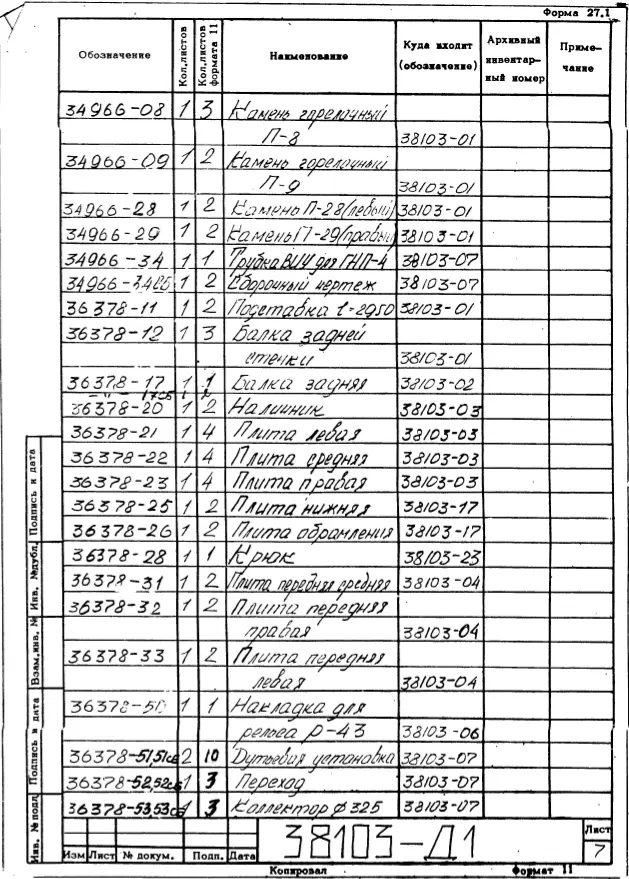 Форма 27.1
Обозначение Кол.листов Кол.листов формата 11 Наименование Куда входит (обозначение) Архивный инвентарный номер Примечание
34966-08 1 3 Камень горелочный
П-8 38103-01
34966-09 1 2 Камень горелочный
П-9 38103-01
34966-28 1 2 Камень П-28(левый) 38103-01
34966-29 1 2 Камень П-29(правый) 38103-01
34966-34 1 1 Трубка ВЦУ для ГНП-4 38103-07
34966-34СБ 1 2 Сборочный чертеж 38103-07
36378-11 1 2 Подставка l=2950 38103-01
36378-12 1 3 Балка задней
стенки 38103-01
36378-17 1 1 Балка задняя 38103-02
-"- 17СБ 1
36378-20 1 2 Наличник 38103-03
36378-21 1 4 Плита левая 38103-03
36378-22 1 4 Плита средняя 38103-03
36378-23 1 4 Плита правая 38103-03
36378-25 1 2 Плита нижняя 38103-17
36378-26 1 2 Плита обрамления 38103-17
36378-28 1 1 Крюк 38103-23
36378-31 1 2 Плита передняя средняя 38103-04
36378-32 1 2 Плита передняя
правая 38103-04
36378-33 1 2 Плита передняя
левая 38103-04
36378-50 1 1 Накладка для
рельса Р-43 38103-06
36378-51,51сб 2 10 Дутьевая установка 38103-07
36378-52,52сб 1 3 Переход 38103-07
36378-53,53сб 1 3 Коллектор ф325 38103-07
Подпись и дата
Инв. №дубл.
Взам.инв. №
Подпись и дата
Инв. № подл.
Изм Лист № докум. Подп. Дата
38103-Д1
Лист
7
Копировал Формат 11